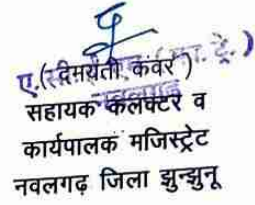 (दमयंती कंवर)
सहायक कलक्टर व
कार्यपालक मजिस्ट्रेट
नवलगढ़ जिला झुन्झुनू